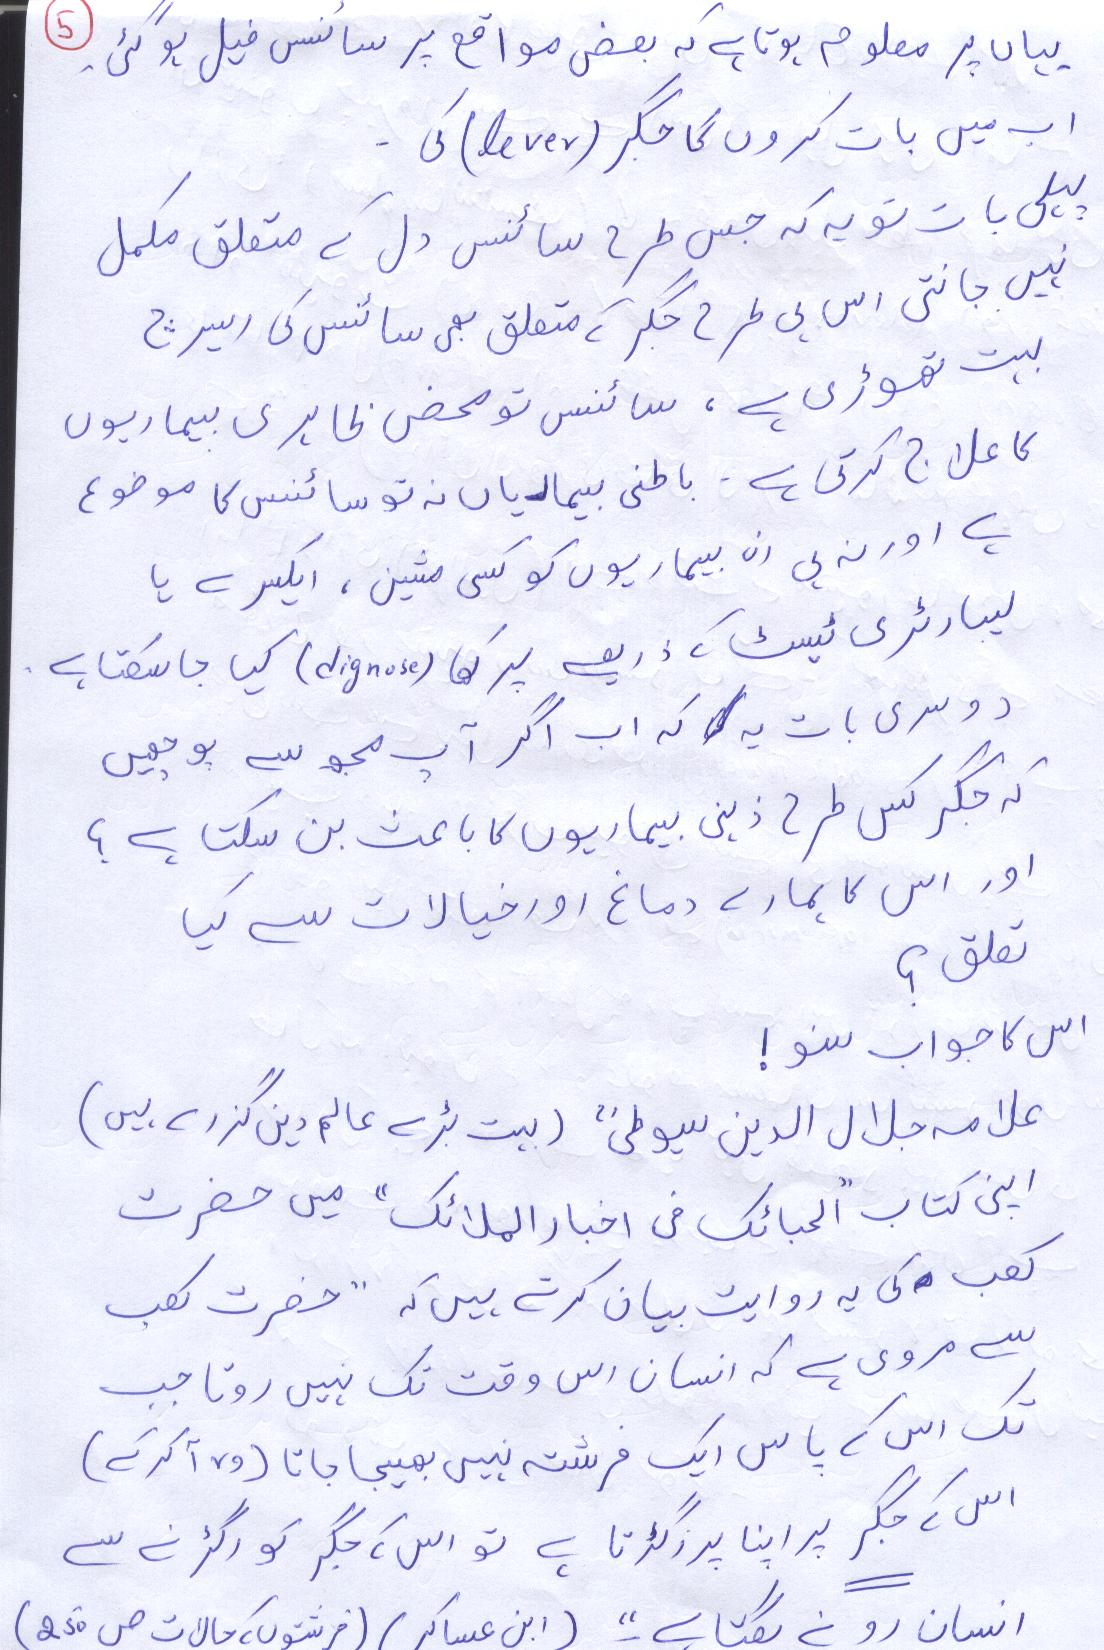 5
یہاں پر معلوم ہوتا ہے کہ بعض مواقع پر سائنس فیل ہو گئی۔
اب میں بات کروں گا جگر (lever) کی ۔
پہلی بات تو یہ کہ جس طرح سائنس دل کے متعلق مکمل
نہیں جانتی اس ہی طرح جگر کے متعلق بھی سائنس کی ریسرچ
بہت تھوڑی ہے ، سائنس تو محض ظاہری بیماریوں
کا علاج کرتی ہے ۔ باطنی بیماریاں نہ تو سائنس کا موضوع
ہے اور نہ ہی ان بیماریوں کو کسی مشین ، ایکسرے یا
لیبارٹری ٹیسٹ کے ذریعے پرکھا (dignose) کیا جا سکتا ہے ۔
دوسری بات یہ کہ اب اگر آپ مجھ سے پوچھیں
کہ جگر کس طرح ذہنی بیماریوں کا باعث بن سکتا ہے ؟
اور اس کا ہمارے دماغ اور خیالات سے کیا
تعلق ؟
اس کا جواب سنو !
علامہ جلال الدین سیوطیؒ (بہت بڑے عالم دین گزرے ہیں)
اپنی کتاب "الحبائک فی اخبار الملائک" میں حضرت
کعب کی یہ روایت بیان کرتے ہیں کہ "حضرت کعب
سے مروی ہے کہ انسان اس وقت تک نہیں روتا جب
تک اس کے پاس ایک فرشتہ نہیں بھیجا جاتا (وہ آ کر کے)
اس کے جگر پر اپنا پر رگڑتا ہے تو اس کے جگر کو رگڑنے سے
انسان رونے لگتا ہے ۔" (ابن عساکر) (فرشتوں کے حالات ص 250)